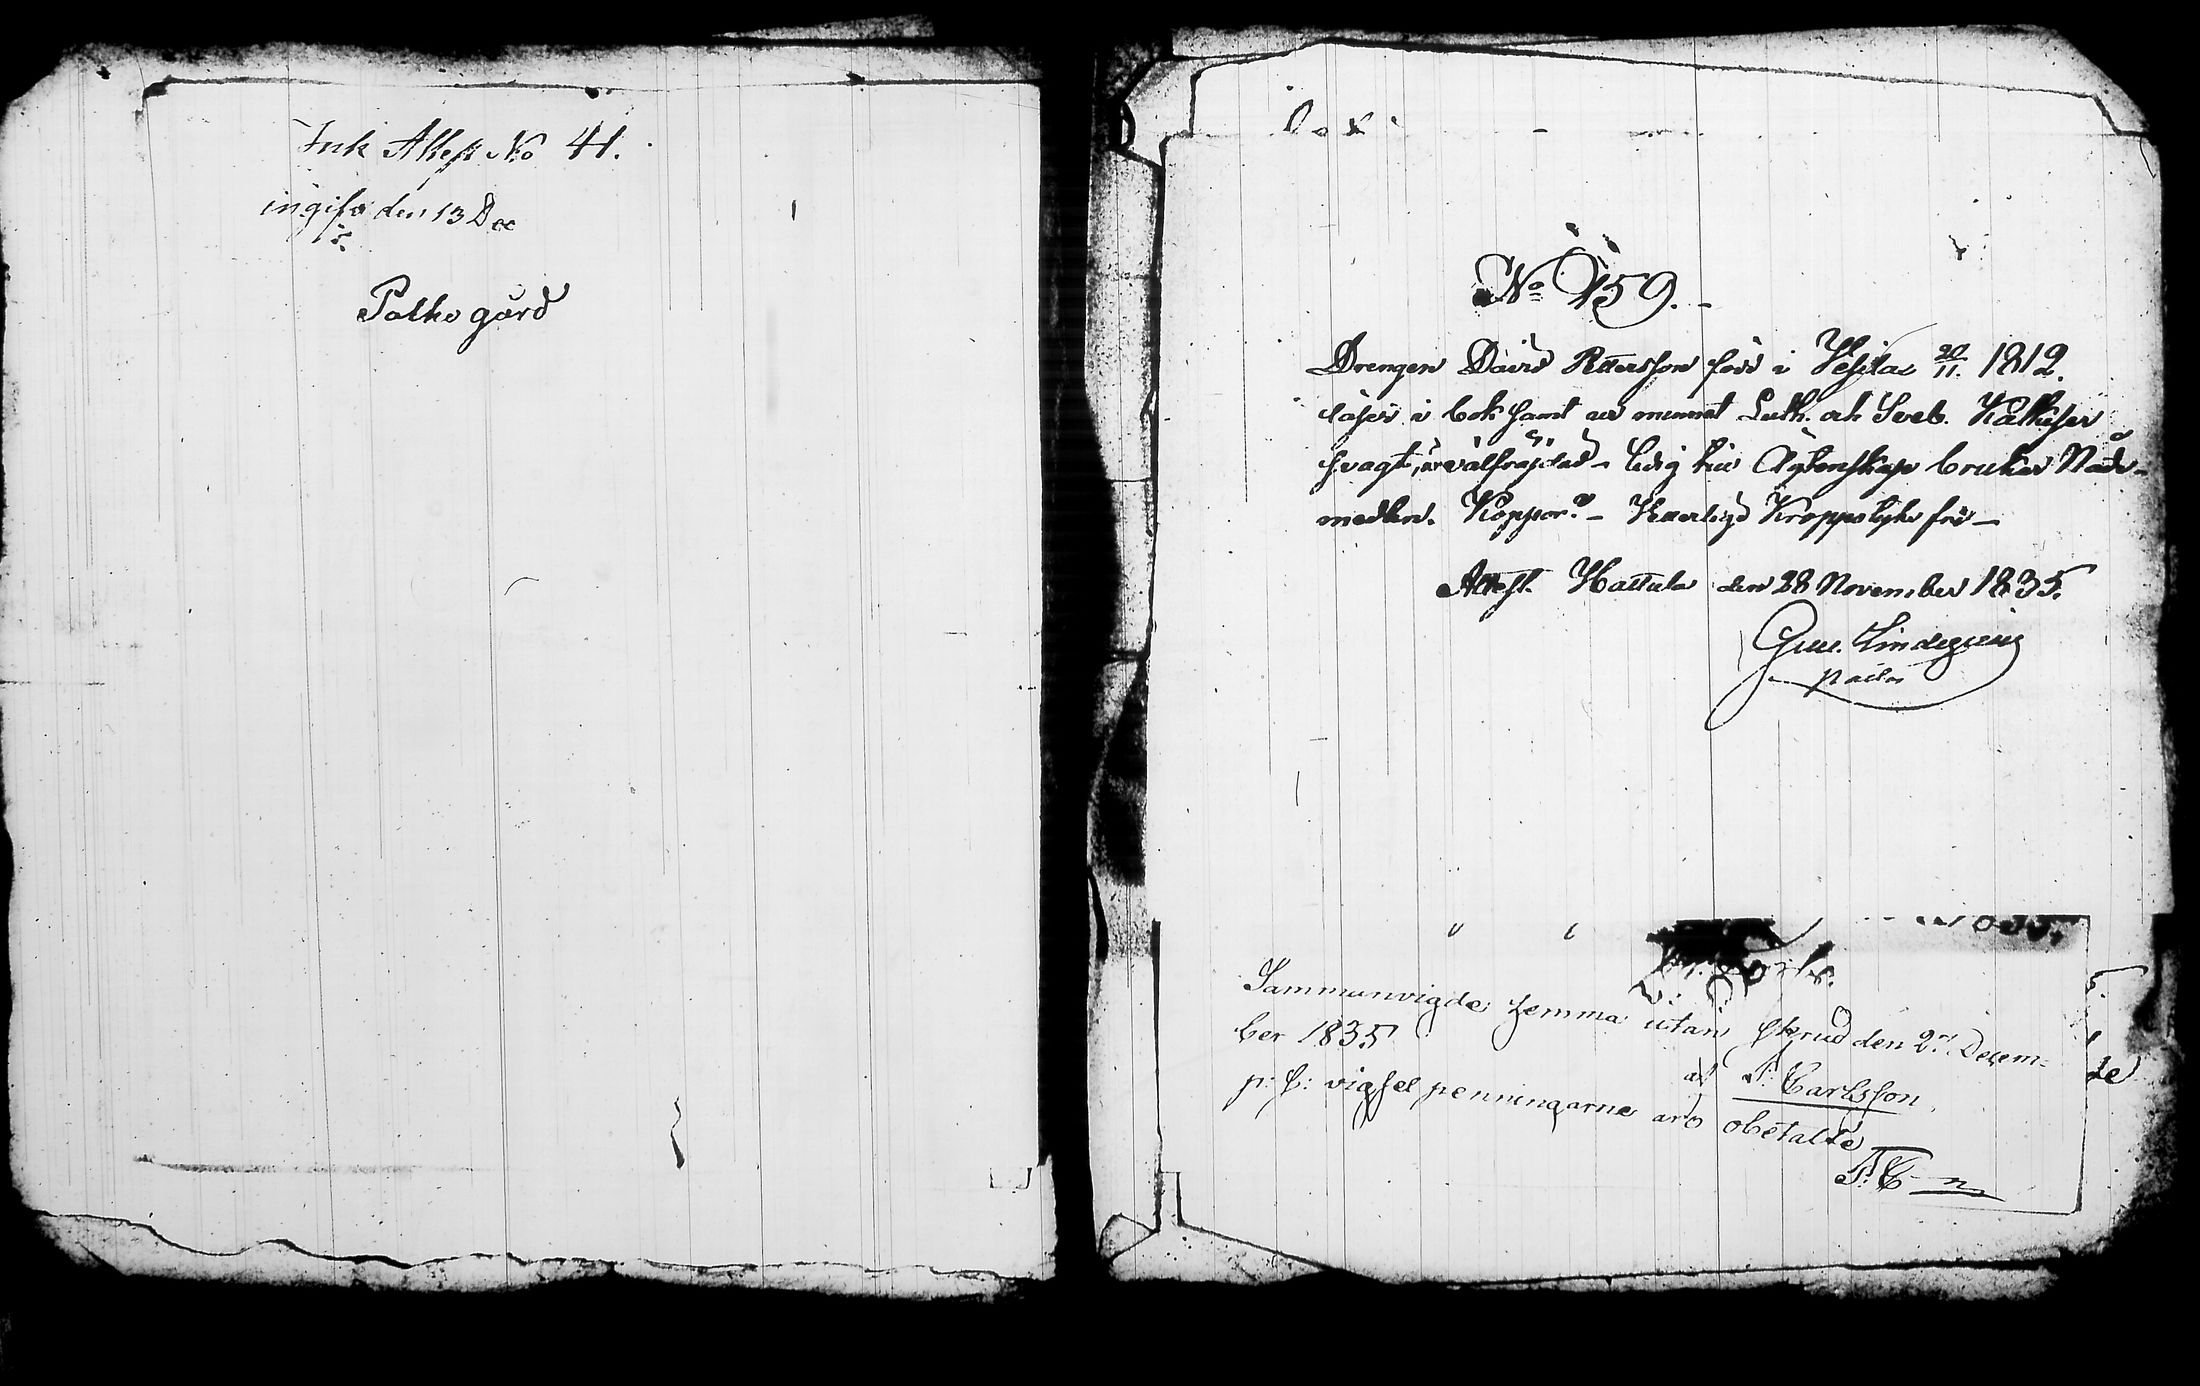 Ink Attest No 41.
ingifv den 13 Dec
Palho gård
No 159.
Drengen David Pettersson född i Vesila 20/11. 1812.
läser i bok samt ur minnet Luth. och Sveb. Katkeser
svagt, är välfräjdad – ledig till Ägtenskap brukar Nåde-
medlen. Koppor – Ytterligt Kroppslyte fri –
Attest. Hattula den 28 November 1835.
Gust. Lindeqvist
Sammanvigde hemma utan skrud den 2 Decem-
ber 1835
af F: Carlsson
p: s: vigsel penningarne äro obetalte
F: C–n